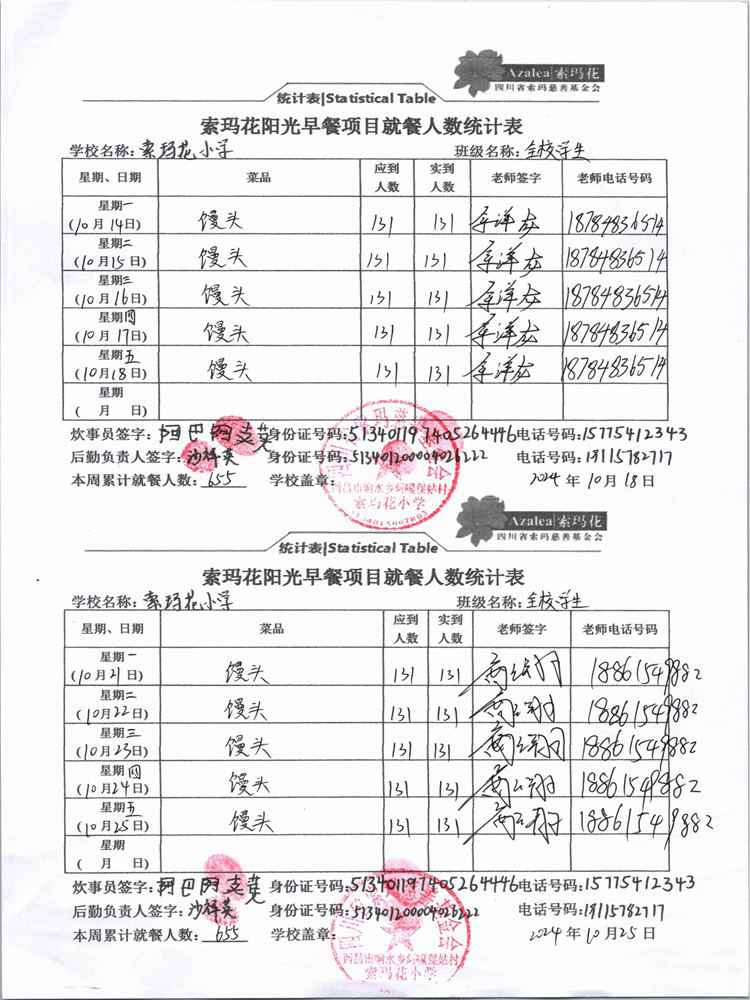 Azalea 索玛花
四川省索玛慈善基金会
统计表|Statistical Table
索玛花阳光早餐项目就餐人数统计表
学校名称：索玛花小学 班级名称：全校学生
星期、日期 菜品 应到人数 实到人数 老师签字 老师电话号码
星期一
(10月14日) 馒头 131 131 18784836514
星期二
(10月15日) 馒头 131 131 18784836514
星期三
(10月16日) 馒头 131 131 18784836514
星期四
(10月17日) 馒头 131 131 18784836514
星期五
(10月18日) 馒头 131 131 18784836514
星期
( 月 日)
炊事员签字：阿巴阿支 身份证号码：513401197405264446 电话号码：15775412343
后勤负责人签字：沙祥英 身份证号码：513401200004026222 电话号码：18115782717
本周累计就餐人数：655 学校盖章： 2024年10月18日
索玛花小学
Azalea 索玛花
四川省索玛慈善基金会
统计表|Statistical Table
索玛花阳光早餐项目就餐人数统计表
学校名称：索玛花小学 班级名称：全校学生
星期、日期 菜品 应到人数 实到人数 老师签字 老师电话号码
星期一
(10月21日) 馒头 131 131 18861549882
星期二
(10月22日) 馒头 131 131 18861549882
星期三
(10月23日) 馒头 131 131 18861549882
星期四
(10月24日) 馒头 131 131 18861549882
星期五
(10月25日) 馒头 131 131 18861549882
星期
( 月 日)
炊事员签字：阿巴阿支 身份证号码：513401197405264446 电话号码：15775412343
后勤负责人签字：沙祥英 身份证号码：513401200004026222 电话号码：18115782717
本周累计就餐人数：655 学校盖章： 2024年10月25日
索玛花小学